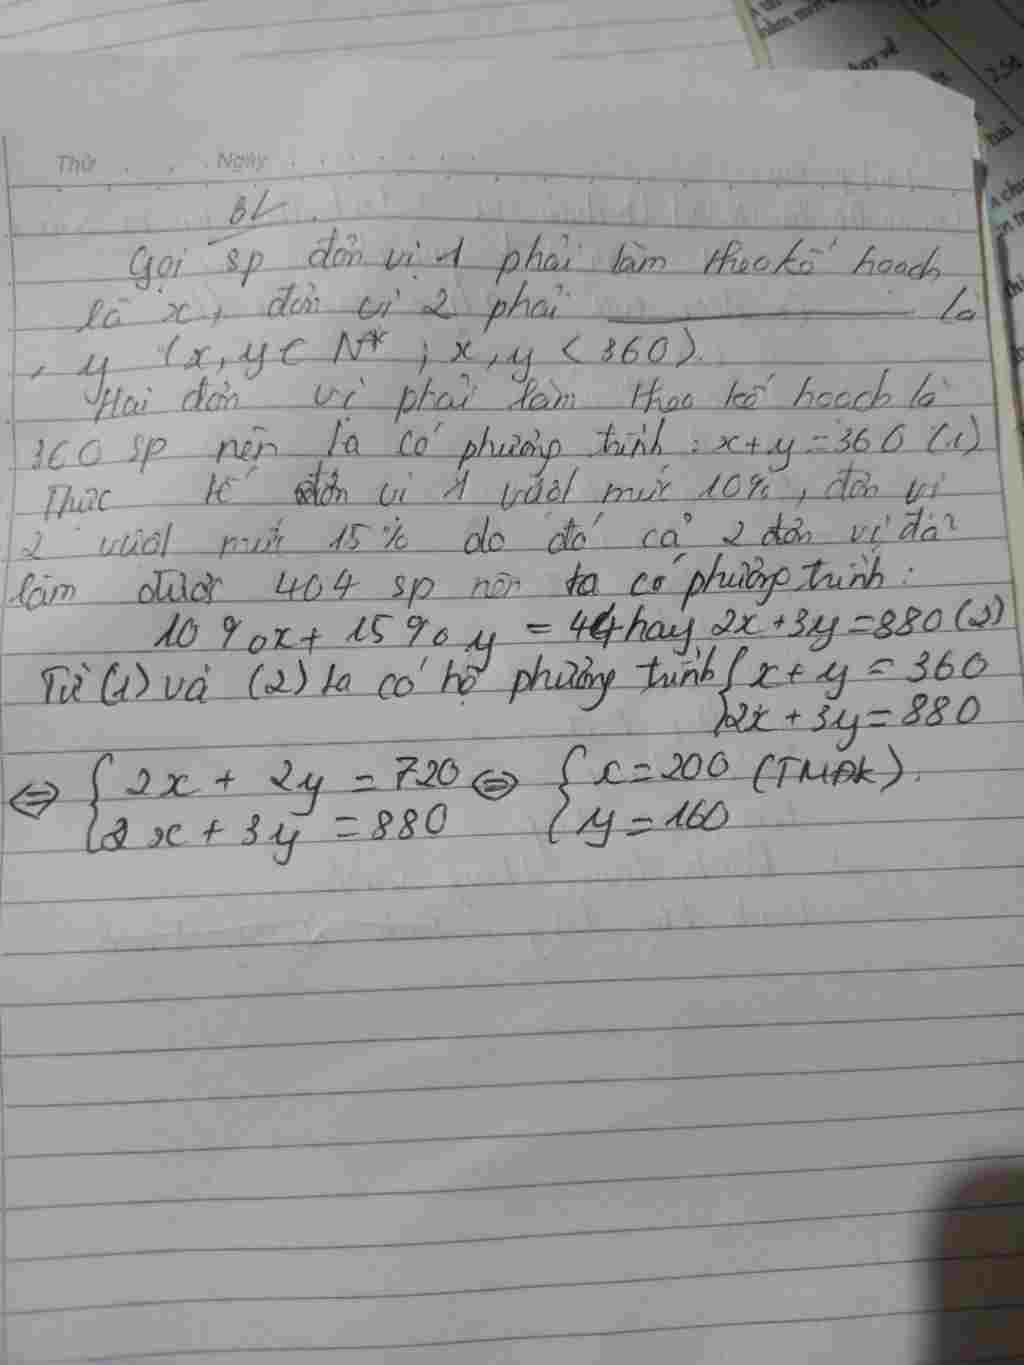 Thứ . . . Ngày . . . . . . .
BL
Gọi sp đơn vị 1 phải làm theo kế hoạch
là x, đơn vị 2 phải ———— là
y (x, y ∈ N* ; x, y < 360).
Hai đơn vị phải làm theo kế hoạch là
360 sp nên ta có phương trình : x + y = 360 (1)
Thực tế đơn vị 1 vượt mức 10%, đơn vị
2 vượt mức 15% do đó cả 2 đơn vị đã
làm được 404 sp nên ta có phương trình :
10%x + 15%y = 44 hay 2x + 3y = 880 (2)
Từ (1) và (2) ta có hệ phương trình { x + y = 360
2x + 3y = 880
⇔ { 2x + 2y = 720 ⇔ { x = 200 (TMĐK).
2x + 3y = 880 y = 160